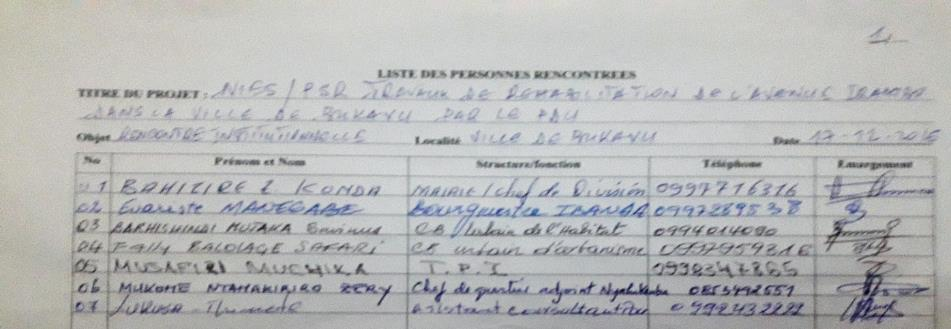 1
LISTE DES PERSONNES RENCONTREES
TITRE DU PROJET : NIES/PSR TRAVAUX DE REHABILITATION DE L'AVENUE IBANDA
DANS LA VILLE DE BUKAVU PAR LE PDU
Objet RENCONTRE INSTITUTIONNELLE Localité VILLE DE BUKAVU Date 17-12-2016
No Prénom et Nom Structure/fonction Téléphone Emargement
01 BAHIZIRE KONDA MAIRIE/Chef de Division 0997716316
02 Evariste MANEGABE Bourgmestre IBANDA 0997289538
03 BARHISHINDI MUTAKA CB Urbain de l'Habitat 0994014090
04 Fally BALOLAGE SAFARI CB urbain d'urbanisme 0997959316
05 MUSAFIRI MUCHIKA T.P.I 0998347865
06 MUKOME NTAHAKIRIRO ZERY Chef de quartier adjoint 0853492551
07 assistant consultant 0992432222